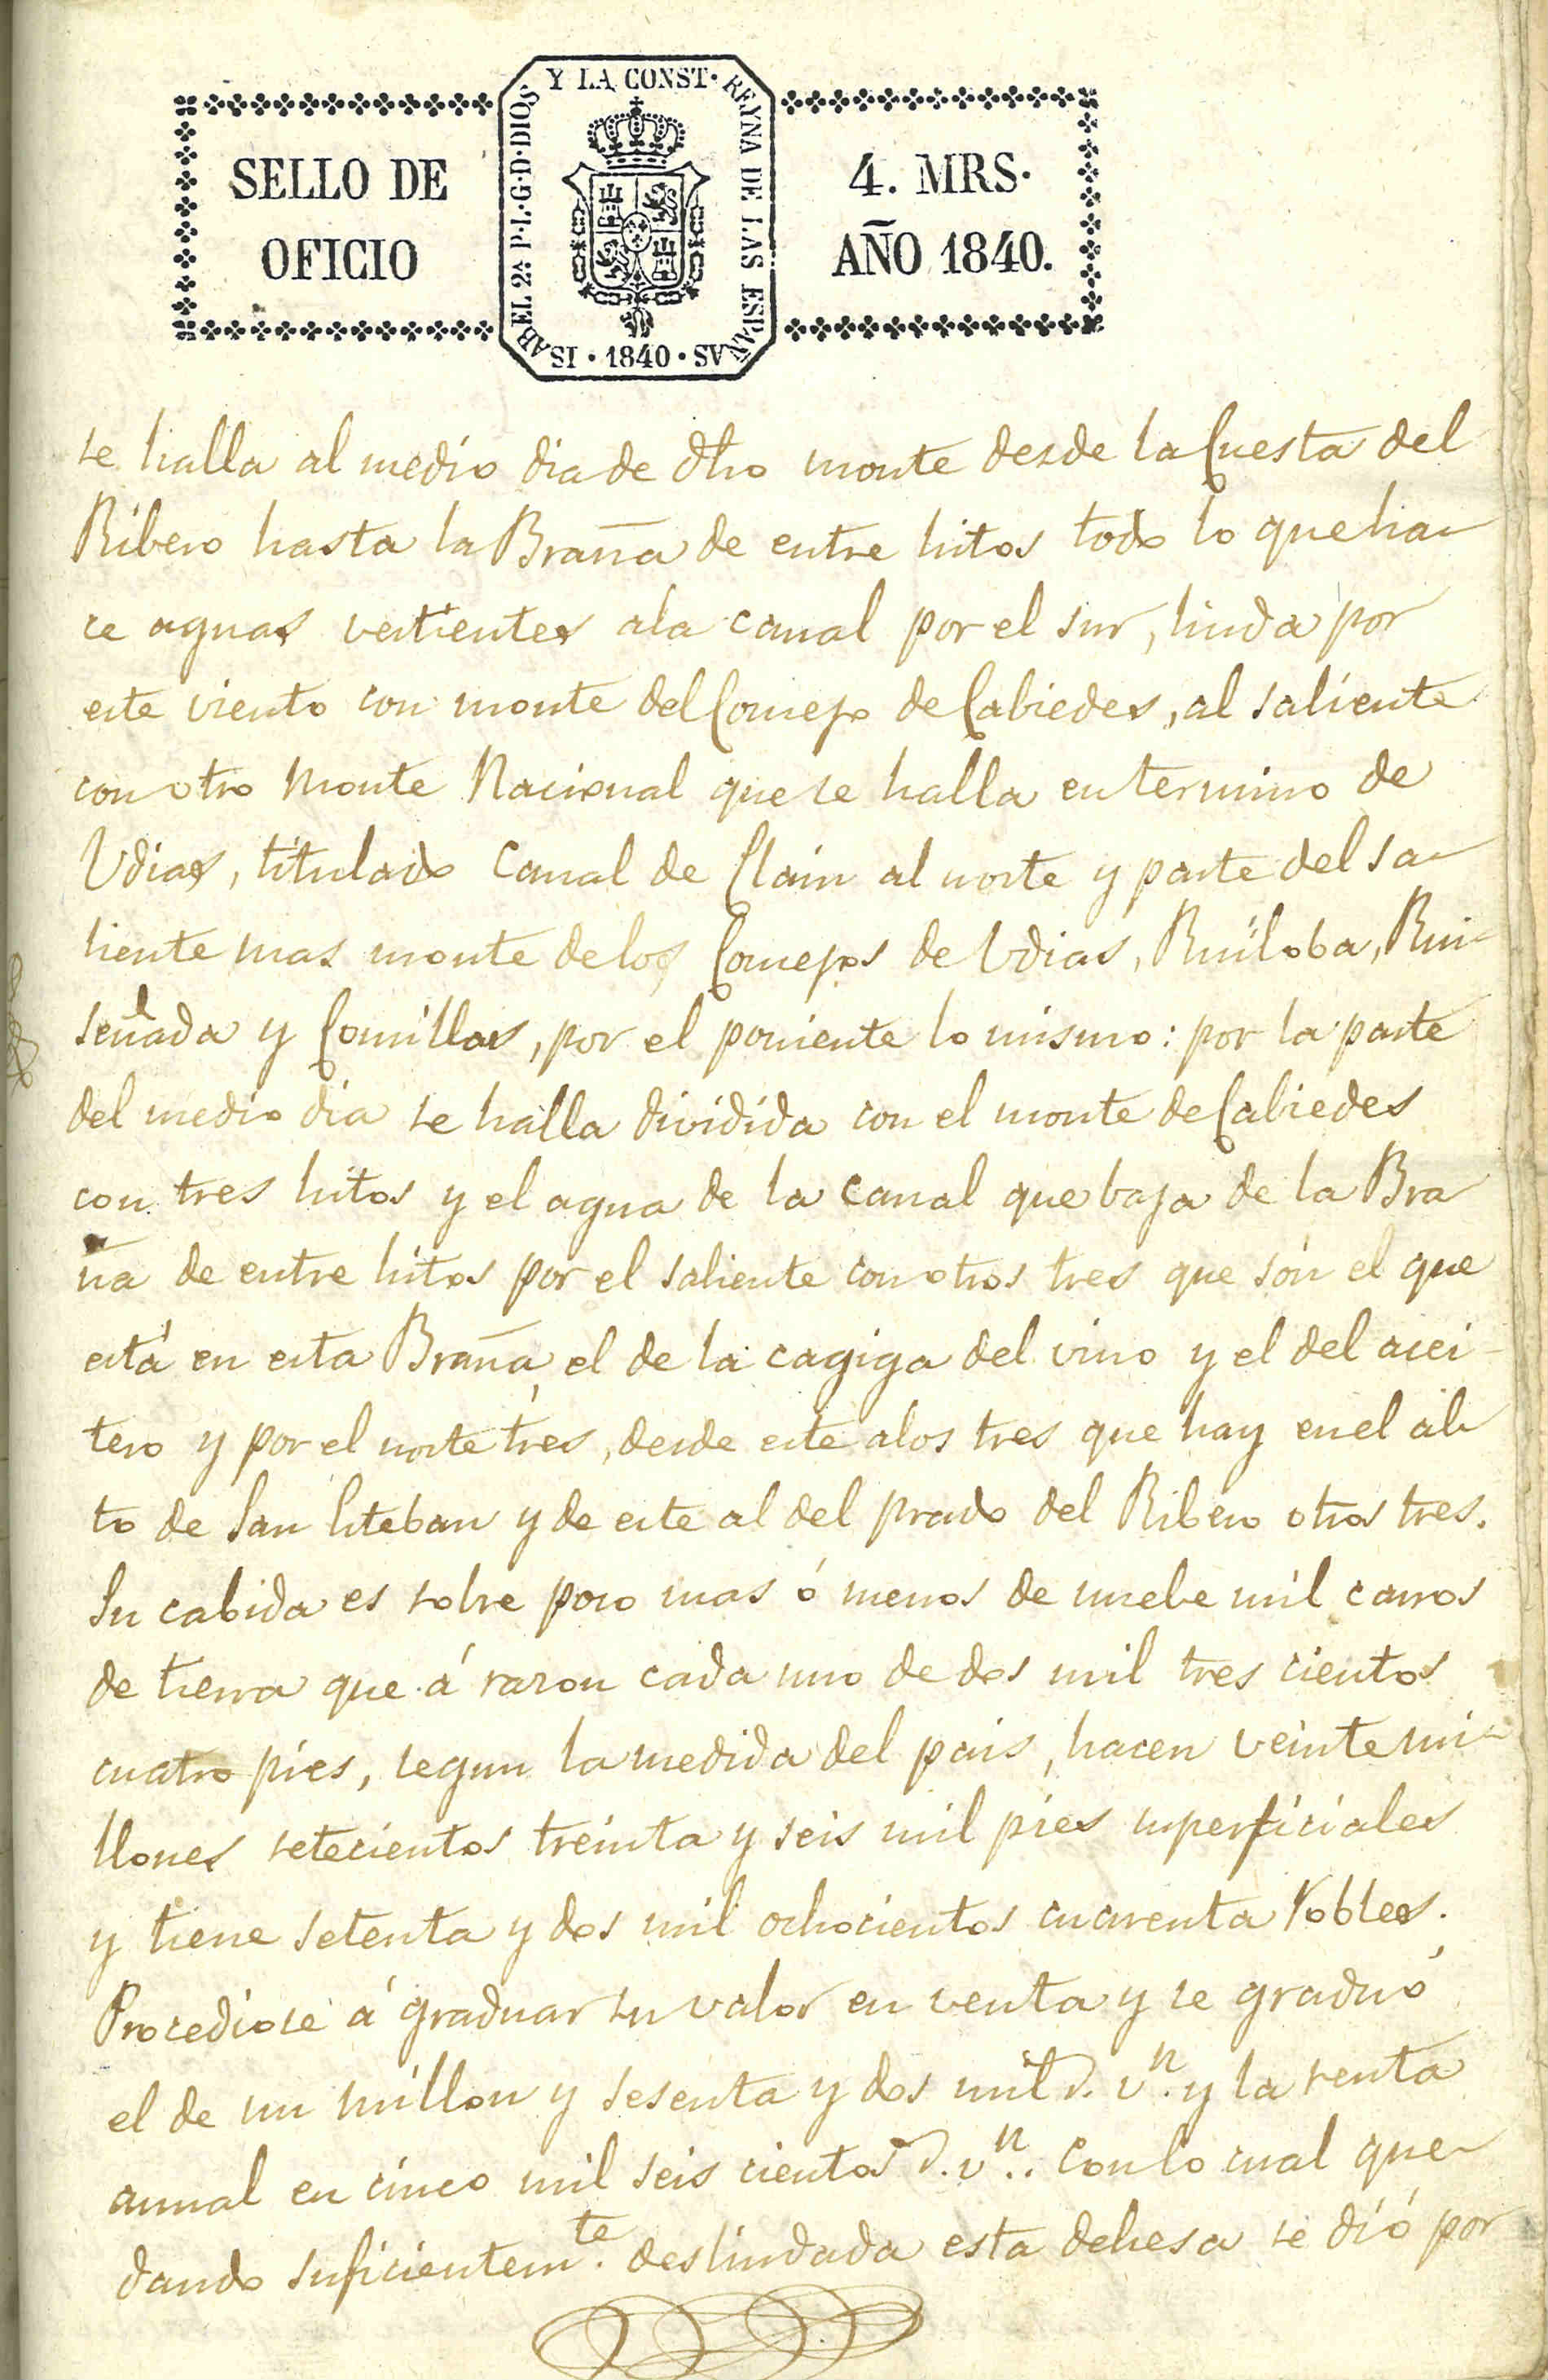 SELLO DE
OFICIO
ISABEL 2ª P·L·G·D·DIOS Y LA CONST· REYNA DE LAS ESPAÑAS · 1840 ·
4. MRS·
AÑO 1840.
se halla al medio dia de dho monte desde la Cuesta del
Ribero hasta la Braña de entre hitos todo lo que ha-
ce aguas vertientes ala canal por el sur, linda por
este viento con monte del Concejo de Cabiedes, al saliente
con otro Monte Nacional que se halla en termino de
Udias, titulado Canal de Clain al norte y parte del sa-
liente mas monte delos Concejos de Udias, Ruiloba, Rui-
señada y Comillas, por el poniente lo mismo: por la parte
del medio dia se halla dividida con el monte de Cabiedes
con tres hitos y el agua de la canal que baja de la Bra
ña de entre hitos por el saliente con otros tres que són el que
está en esta Braña, el de la cagiga del vino y el del acei-
tero y por el norte tres, desde este alos tres que hay en el al-
to de San Esteban y de este al del prado del Ribero otros tres.
Su cabida es sobre poco mas ó menos de nuebe mil carros
de tierra que á razon cada uno de dos mil tres cientos
cuatro pies, segun la medida del pais, hacen veinte mi-
llones setecientos treinta y seis mil pies superficiales
y tiene setenta y dos mil ochocientos cuarenta Robles.
Procediose á graduar su valor en venta y se graduó
el de un millon y sesenta y dos mil r. vn. y la renta
annal en cinco mil seis cientos r. vn.. Con lo cual que-
dando suficientemte. deslindada esta dehesa se dió por